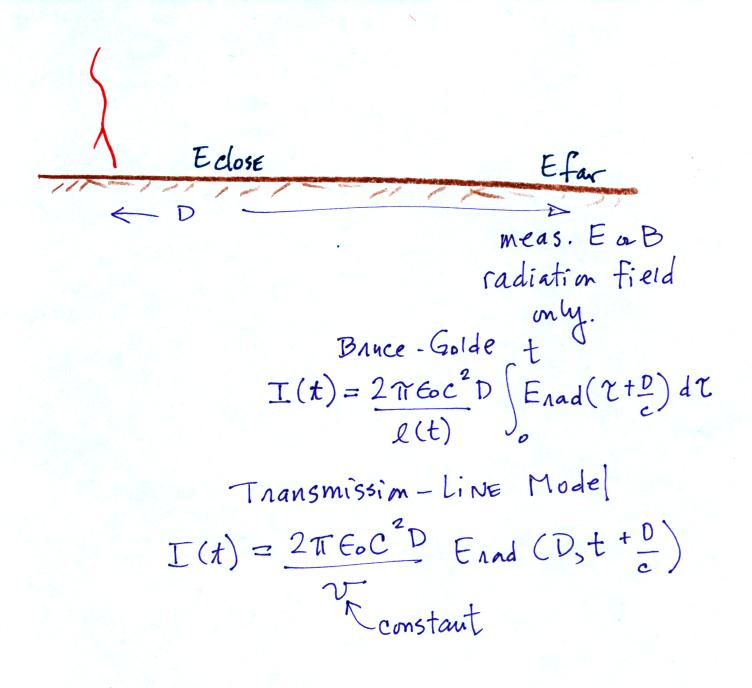 E close E far
← D →
meas. E or B
radiation field
only.
Bruce - Golde
I(t) = 2πε₀c²D / l(t) ∫₀ᵗ Erad(τ + D/c) dτ
Transmission - Line Model
I(t) = 2πε₀c²D / v Erad (D, t + D/c)
constant